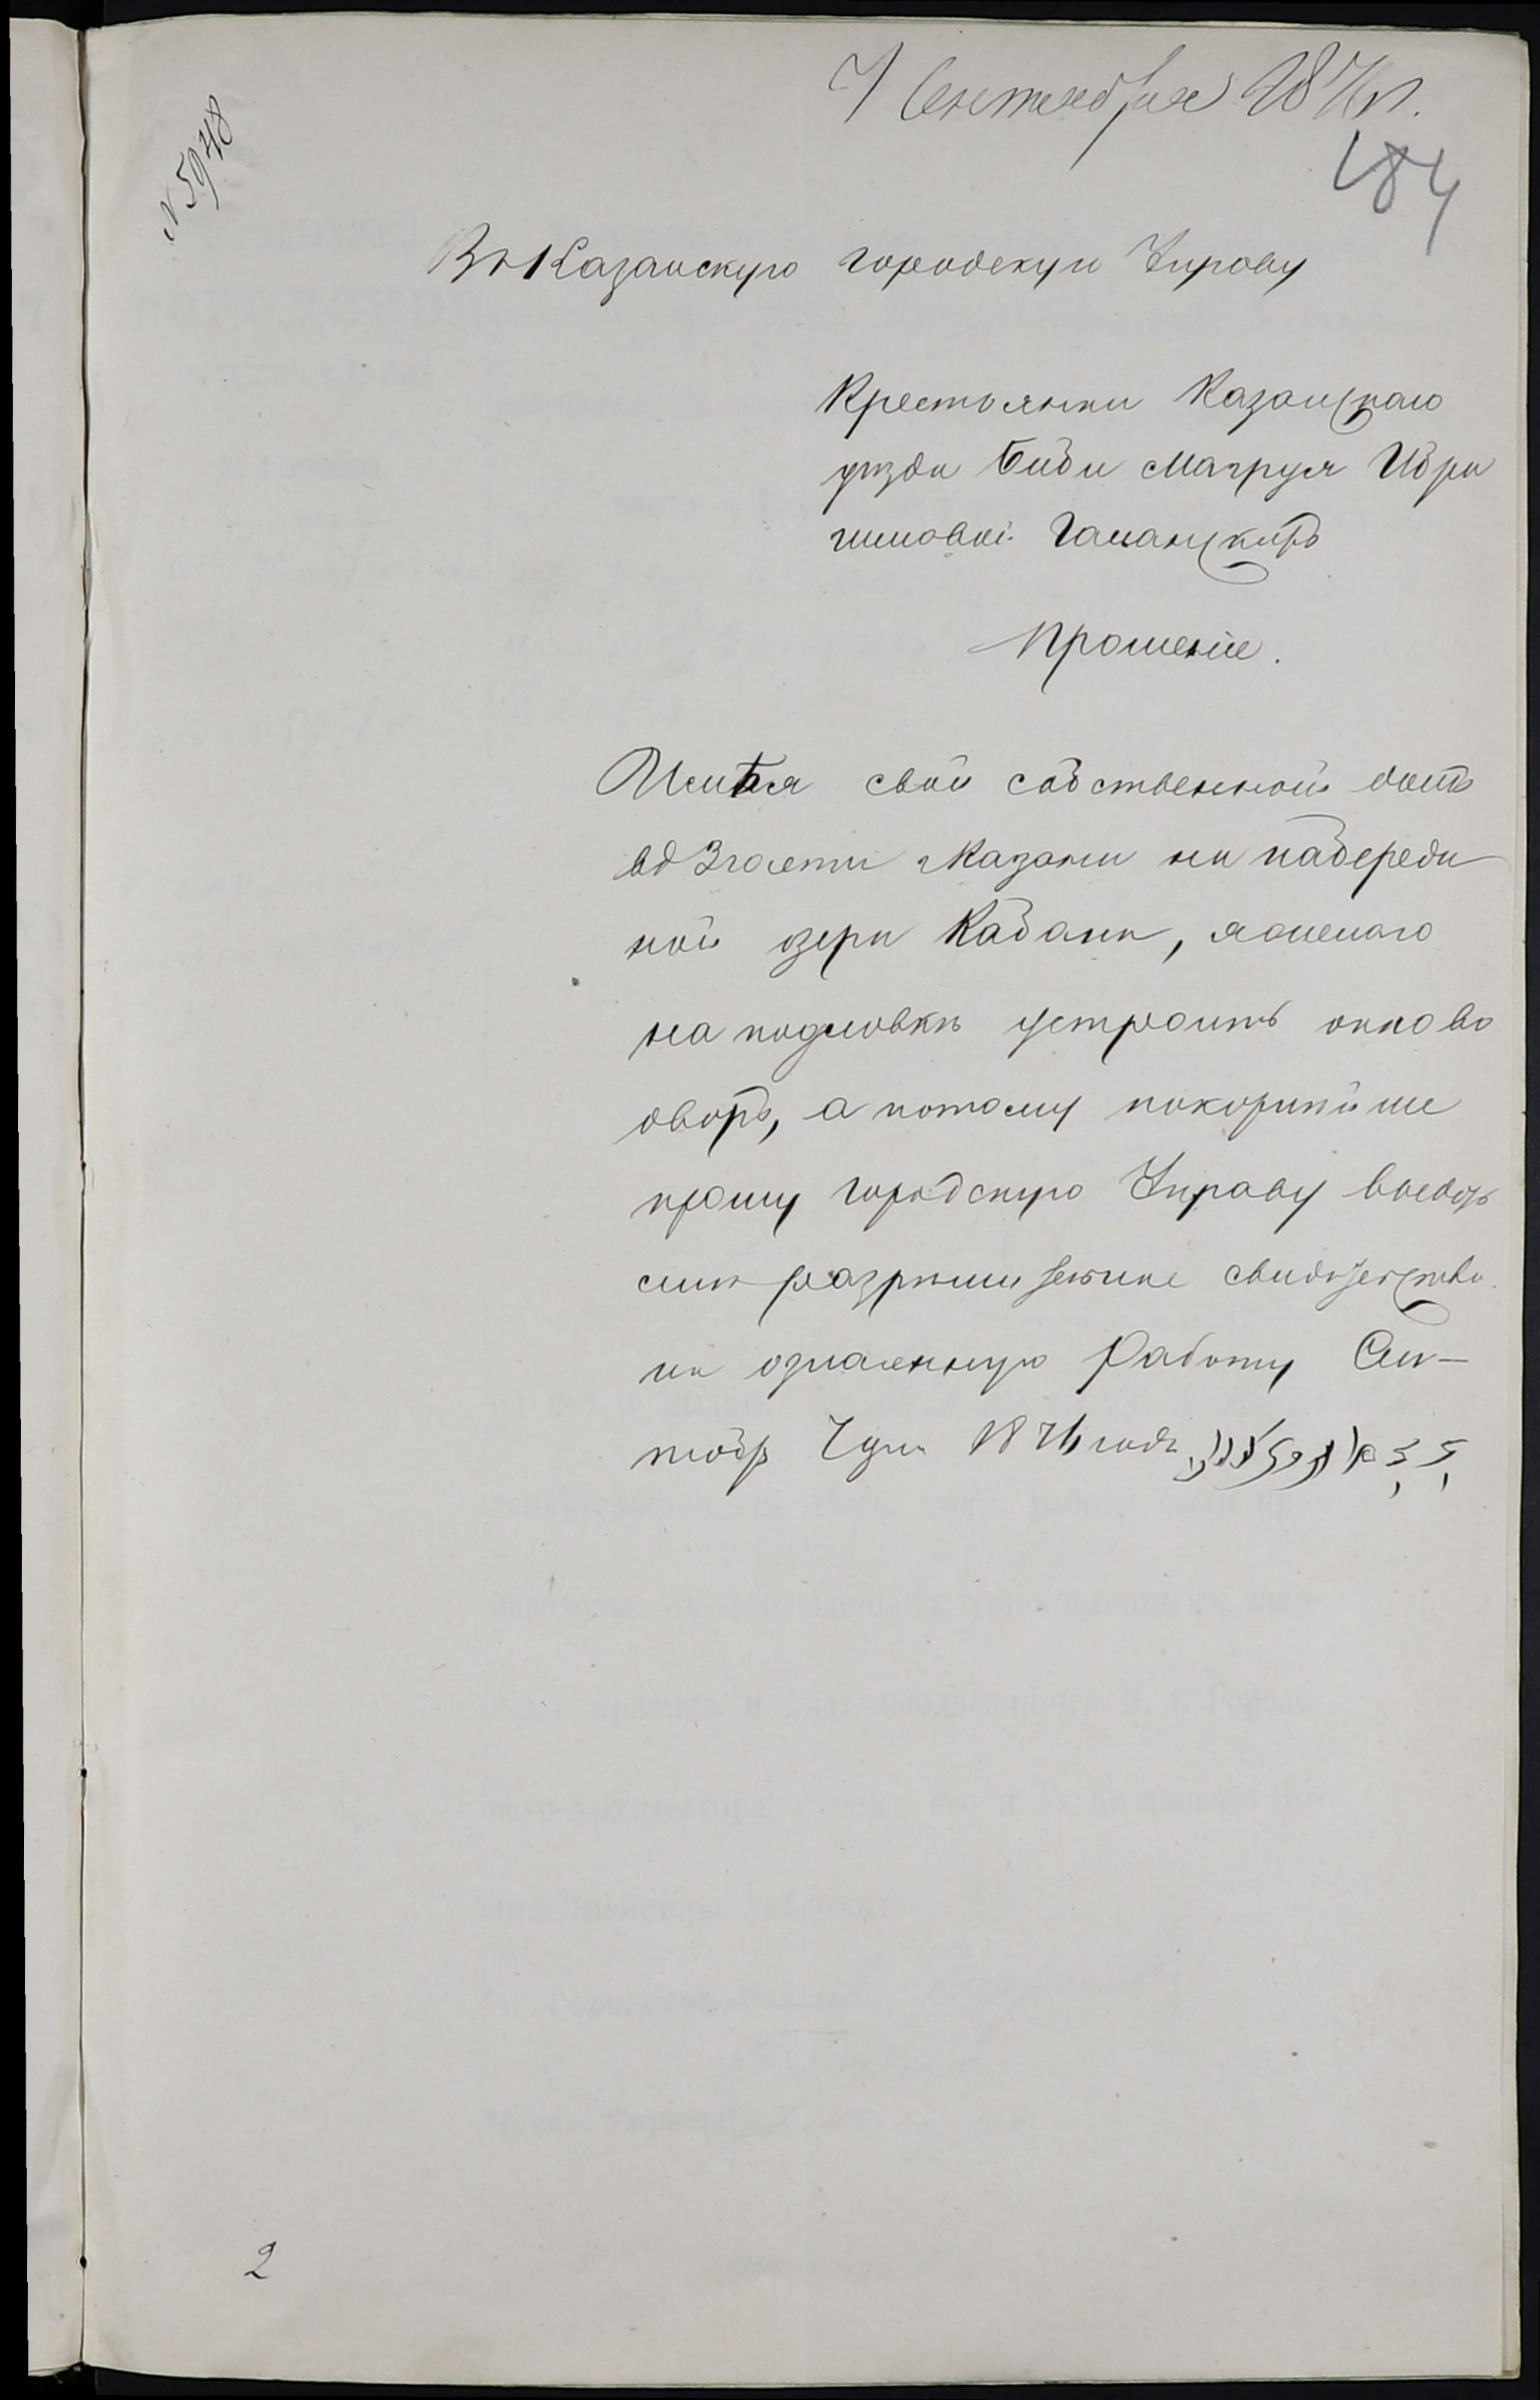 7 Сентября 1876 г.
№ 5948
184
Въ Казанскую городскую Управу
Крестьянки Казанскаго
уѣзда Биби Магруя Ибра
гимовой
Прошеніе.
Имѣя свой собственной домъ
въ 3 части г Казани на набереж
ной озера Кабана, я желаю
на подловкѣ устроить окно во
дворъ, а потому покорнѣйше
прошу городскую Управу выдать
мнѣ разрѣшительное свидетельство
на означенную работу Сен-
тябр 7 дня 1876 года
2